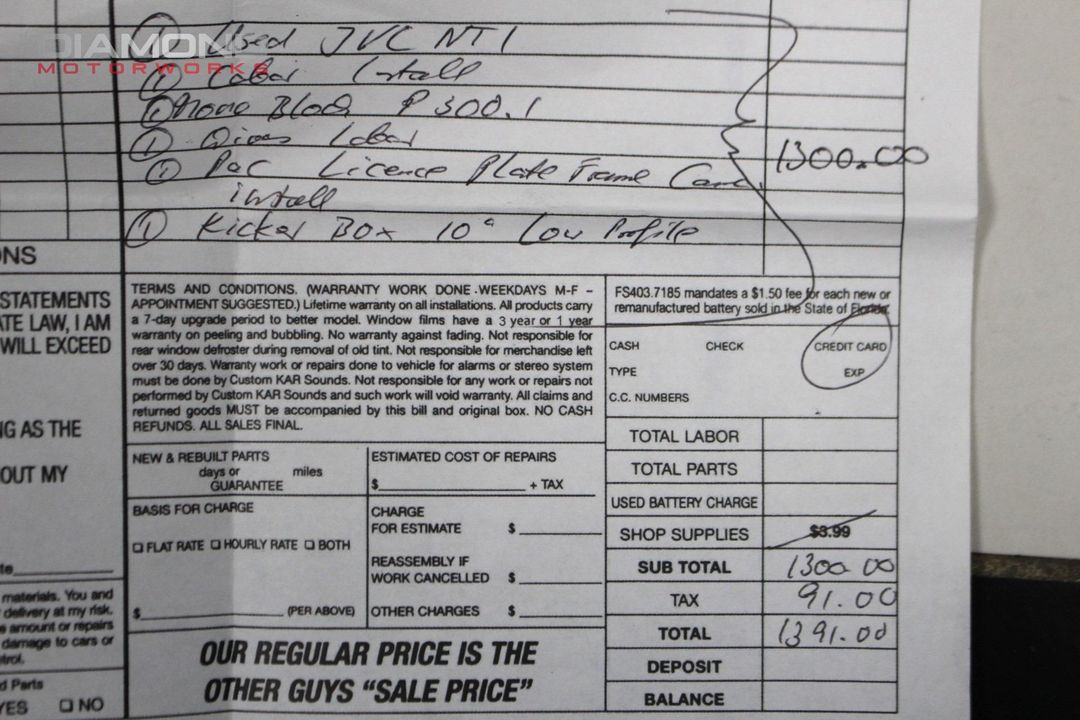 DIAMOND
MOTORWORKS
① Used JVC NT1
① Labor Install
① Block P300.1
① Labor
① PAC Licence Plate Frame Cam.
install
1300.00
① Kicker Box 10" Low Profile
ONS
STATEMENTS
ATE LAW, I AM
WILL EXCEED
NG AS THE
OUT MY
te
materials. You and
delivery at my risk.
e amount or repairs
damage to cars or
trol.
d Parts
YES ☐ NO
TERMS AND CONDITIONS. (WARRANTY WORK DONE -WEEKDAYS M-F –
APPOINTMENT SUGGESTED.) Lifetime warranty on all installations. All products carry
a 7-day upgrade period to better model. Window films have a 3 year or 1 year
warranty on peeling and bubbling. No warranty against fading. Not responsible for
rear window defroster during removal of old tint. Not responsible for merchandise left
over 30 days. Warranty work or repairs done to vehicle for alarms or stereo system
must be done by Custom KAR Sounds. Not responsible for any work or repairs not
performed by Custom KAR Sounds and such work will void warranty. All claims and
returned goods MUST be accompanied by this bill and original box. NO CASH
REFUNDS. ALL SALES FINAL.
NEW & REBUILT PARTS
days or miles
GUARANTEE
ESTIMATED COST OF REPAIRS
$ + TAX
BASIS FOR CHARGE
☐ FLAT RATE ☐ HOURLY RATE ☐ BOTH
$ (PER ABOVE)
CHARGE
FOR ESTIMATE $
REASSEMBLY IF
WORK CANCELLED $
OTHER CHARGES $
OUR REGULAR PRICE IS THE
OTHER GUYS "SALE PRICE"
FS403.7185 mandates a $1.50 fee for each new or
remanufactured battery sold in the State of Florida.
CASH CHECK CREDIT CARD
TYPE EXP
C.C. NUMBERS
TOTAL LABOR
TOTAL PARTS
USED BATTERY CHARGE
SHOP SUPPLIES $3.99
SUB TOTAL 1300.00
TAX 91.00
TOTAL 1391.00
DEPOSIT
BALANCE